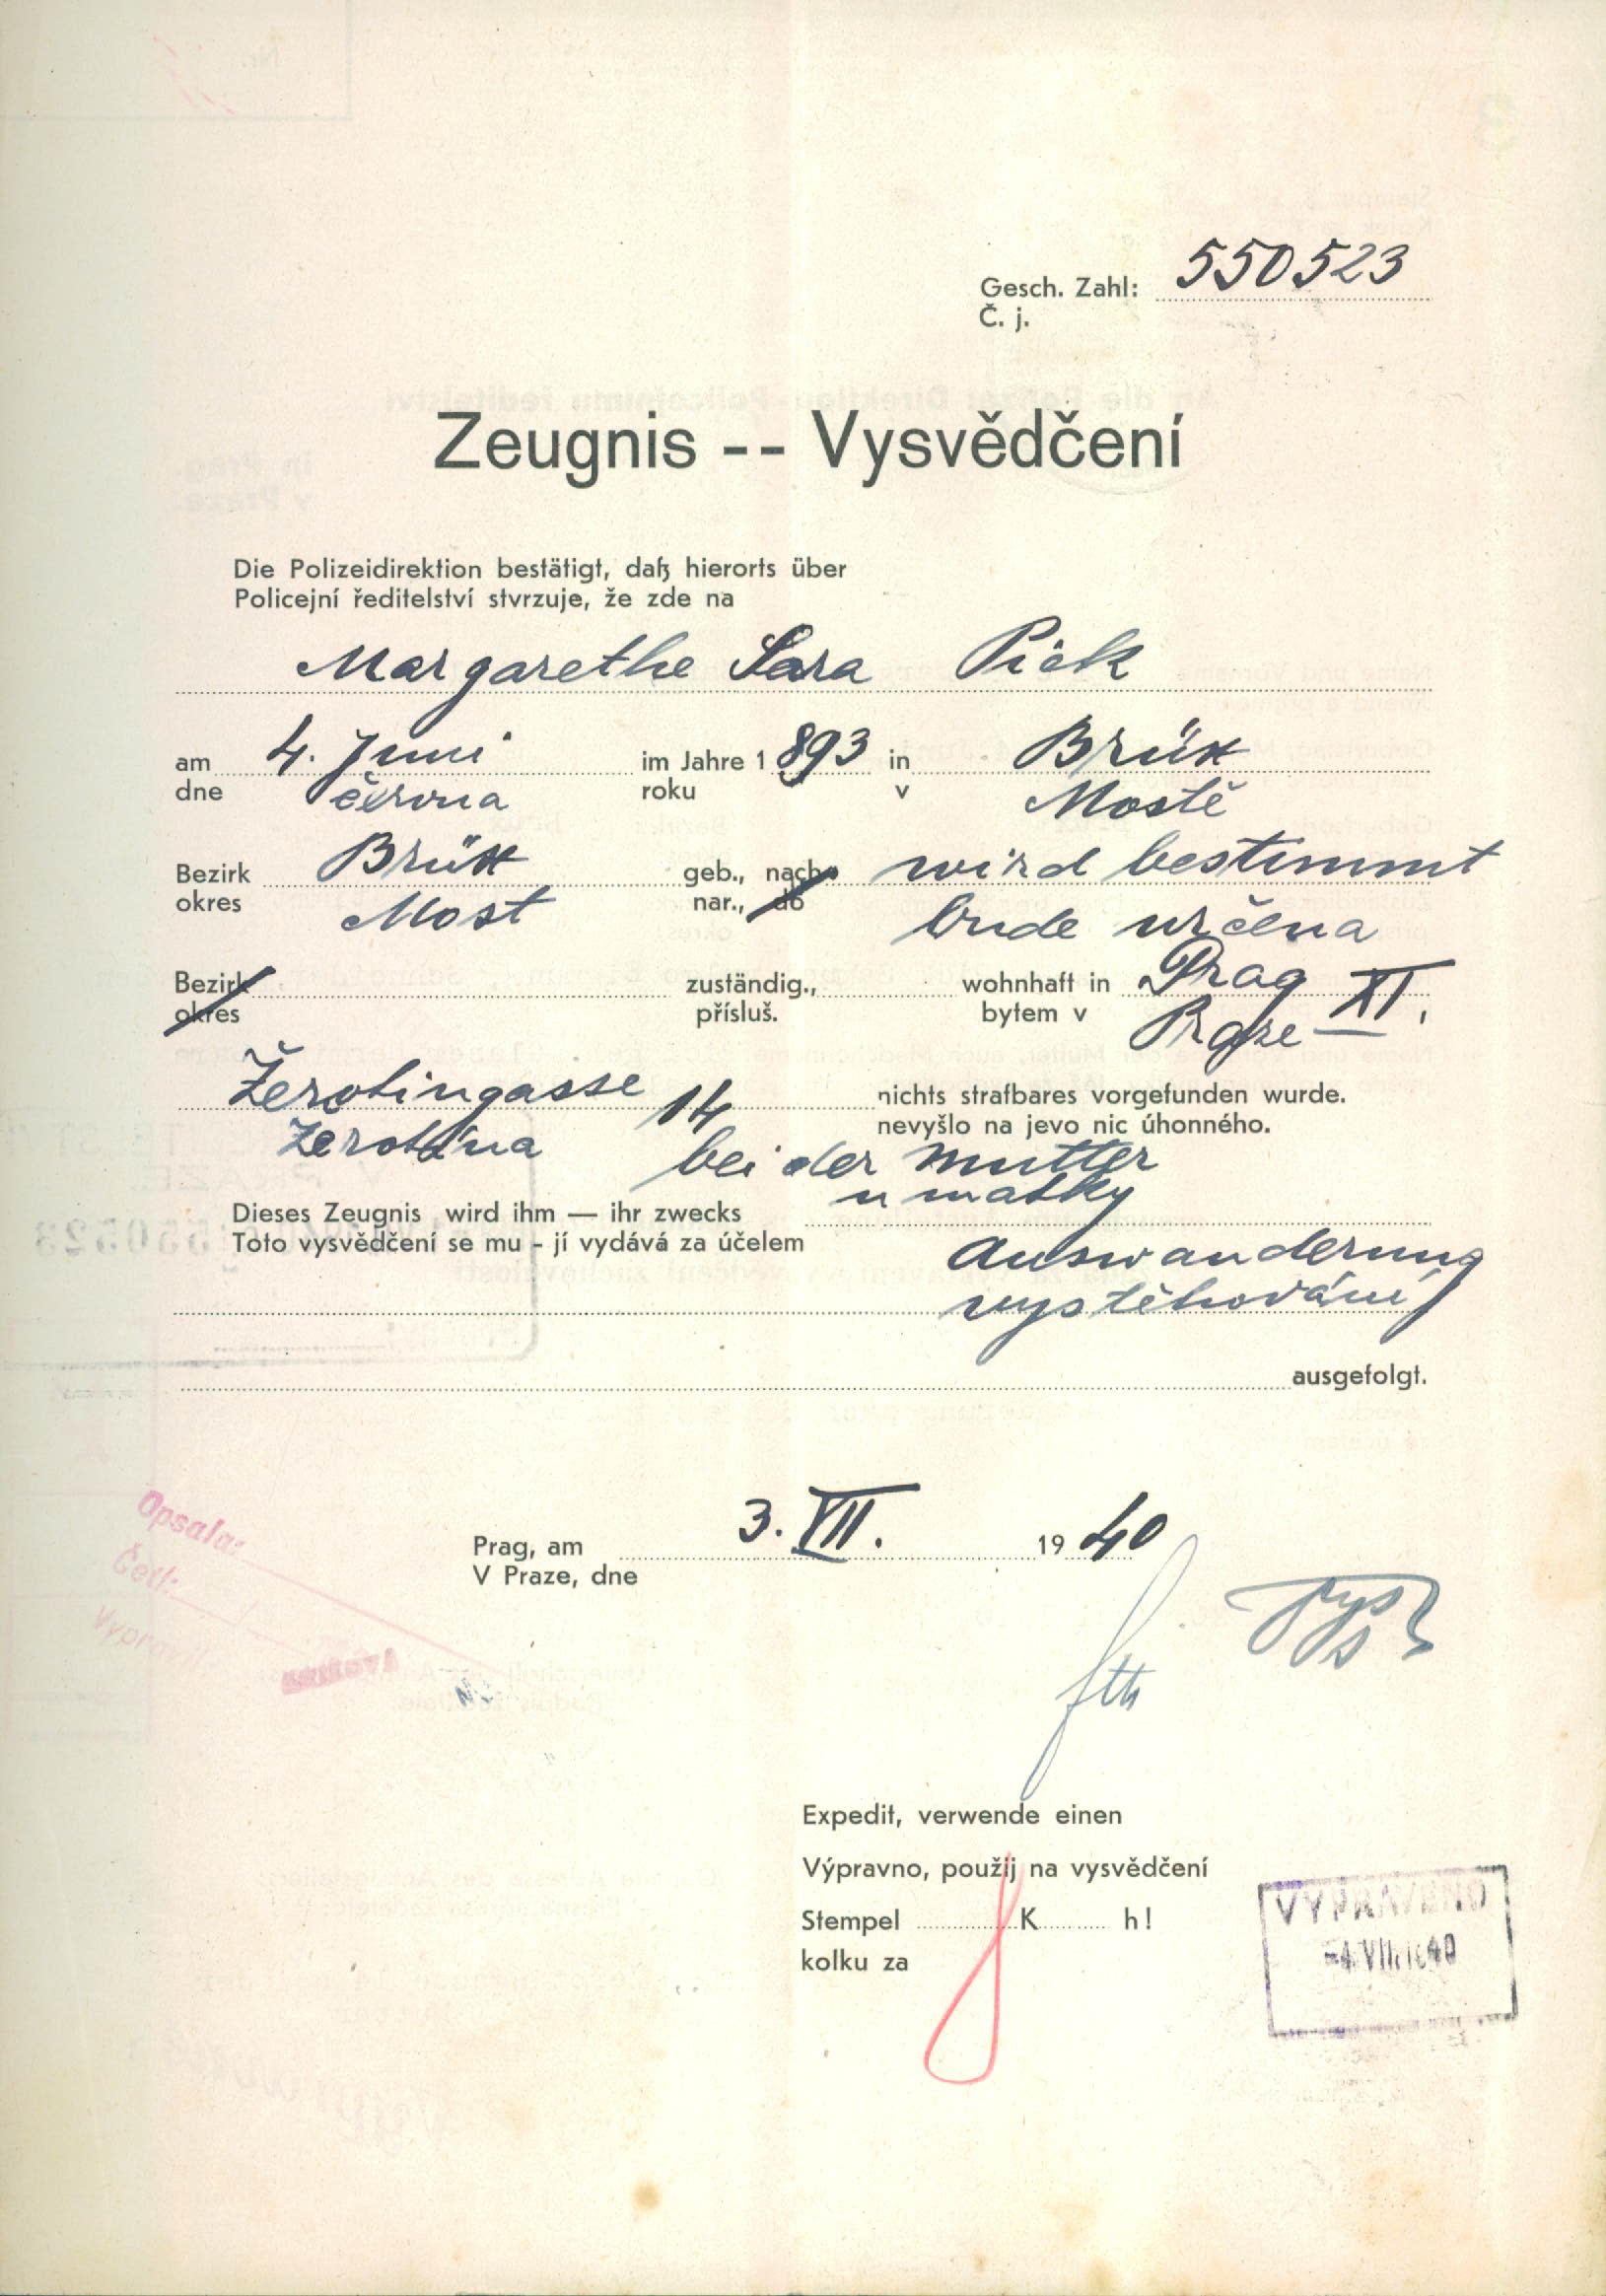 Gesch. Zahl: 550523
Č. j.
Zeugnis -- Vysvědčení
Die Polizeidirektion bestätigt, daß hierorts über
Policejní ředitelství stvrzuje, že zde na
Margarethe Sara Pick
am 4. Juni im Jahre 1 893 in Brüx
dne června roku v Mostě
Bezirk Brüx geb., nach wird bestimmt
okres Most nar., do bude určena
Bezirk zuständig., wohnhaft in Prag XI.
okres přísluš. bytem v Praze
Žerotingasse 14 nichts strafbares vorgefunden wurde.
nevyšlo na jevo nic úhonného.
Žerotína bei der Mutter
u matky
Dieses Zeugnis wird ihm — ihr zwecks
Toto vysvědčení se mu - jí vydává za účelem
Auswanderung
vystěhování
ausgefolgt.
Prag, am 3. VII. 19 40
V Praze, dne
Opsala:
Četl:
Vypravil:
Expedit, verwende einen
Výpravno, použij na vysvědčení
Stempel K h!
kolku za
VYPRAVENO
-4. VII. 1940